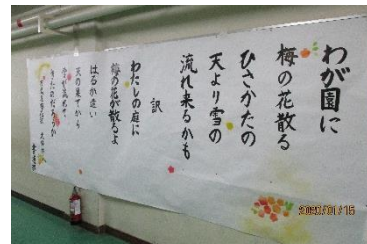 わが園に
梅の花散る
ひさかたの
天より雪の
流れ来るかも
訳
わたしの庭に
梅の花が散るよ
はるか遠い
天の果てから
雪が流れて
きたのだろうか
2020/01/15